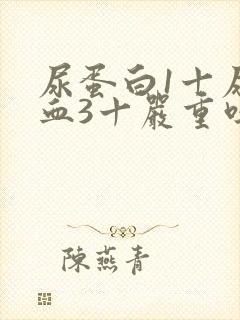 尿蛋白1十尿
血3十嚴重嗎
陳燕青